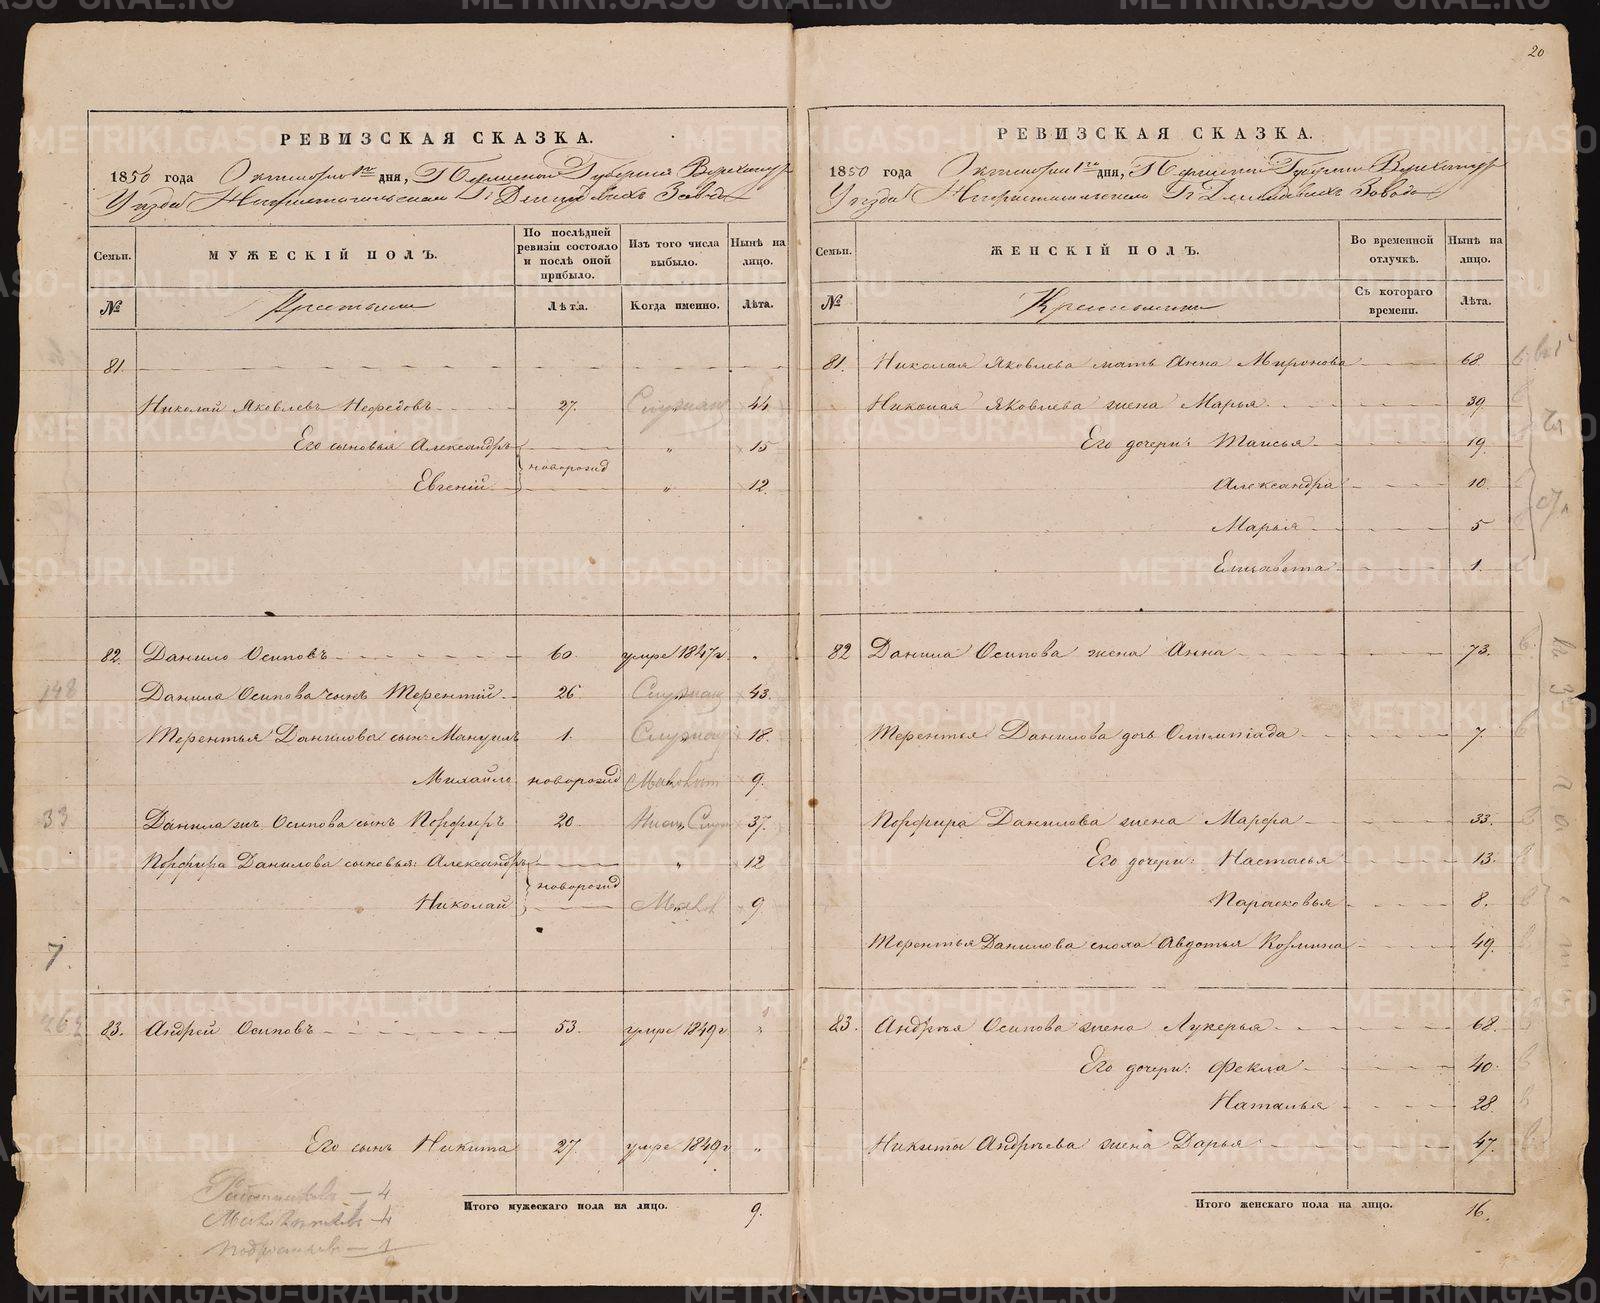 20
РЕВИЗСКАЯ СКАЗКА.
1850 года Октября 1го дня, Пермской Губернии Верхотур
Уезда Нижнетагильскаго Г. Демидовыхъ Завода
Семьи. МУЖЕСКІЙ ПОЛЪ. По послѣдней ревизіи состояло и послѣ оной прибыло. Изъ того числа выбыло. Нынѣ на лицо.
№ Крестьяне Лѣта. Когда именно. Лѣта.
81.
Николай Яковлевъ Нефедовъ 27. 44
Его сыновья Александръ " 15
новорожд
Евгеній " 12
82. Данило Осиповъ 60. умре 1847г.
148 Данила Осипова сынъ Терентій 26 43.
Терентья Данилова сын: Мануилъ 1. 18.
Михайло новорожд 9.
33 Данила жъ Осипова сынъ Порфиръ 20. 37.
Порфира Данилова сыновья: Александръ " 12
новорожд
Николай 9
7.
83. Андрей Осиповъ 53. умре 1849г "
Его сынъ Никита 27. умре 1849г "
Работниковъ — 4
Малолѣтковъ — 4
подростковъ — 1
Итого мужескаго пола на лицо. 9.
РЕВИЗСКАЯ СКАЗКА.
1850 года Октября 1го дня, Пермской Губернии Верхотур
Уезда Нижнетагильскаго Г. Демидовыхъ Завода
Семьи. ЖЕНСКІЙ ПОЛЪ. Во временной отлучкѣ. Нынѣ на лицо.
№ Крестьянки Съ котораго времени. Лѣта.
81. Николая Яковлева мать Анна Миронова 68
Николая Яковлева жена Марья 39.
Его дочери: Таисья 19.
Александра 10.
Марья 5
Елисавета 1.
82 Данила Осипова жена Анна 73.
Терентья Данилова дочь Олимпіада 7.
Порфира Данилова жена Марфа 33.
Его дочери: Настасья 13.
Парасковья 8.
Терентья Данилова сноха Авдотья Козмина 49.
83. Андрѣя Осипова жена Лукерья 68.
Его дочери: Фекла 40.
Наталья 28.
Никиты Андрѣева жена Дарья 47.
Итого женскаго пола на лицо. 16.
METRIKI.GASO-URAL.RU